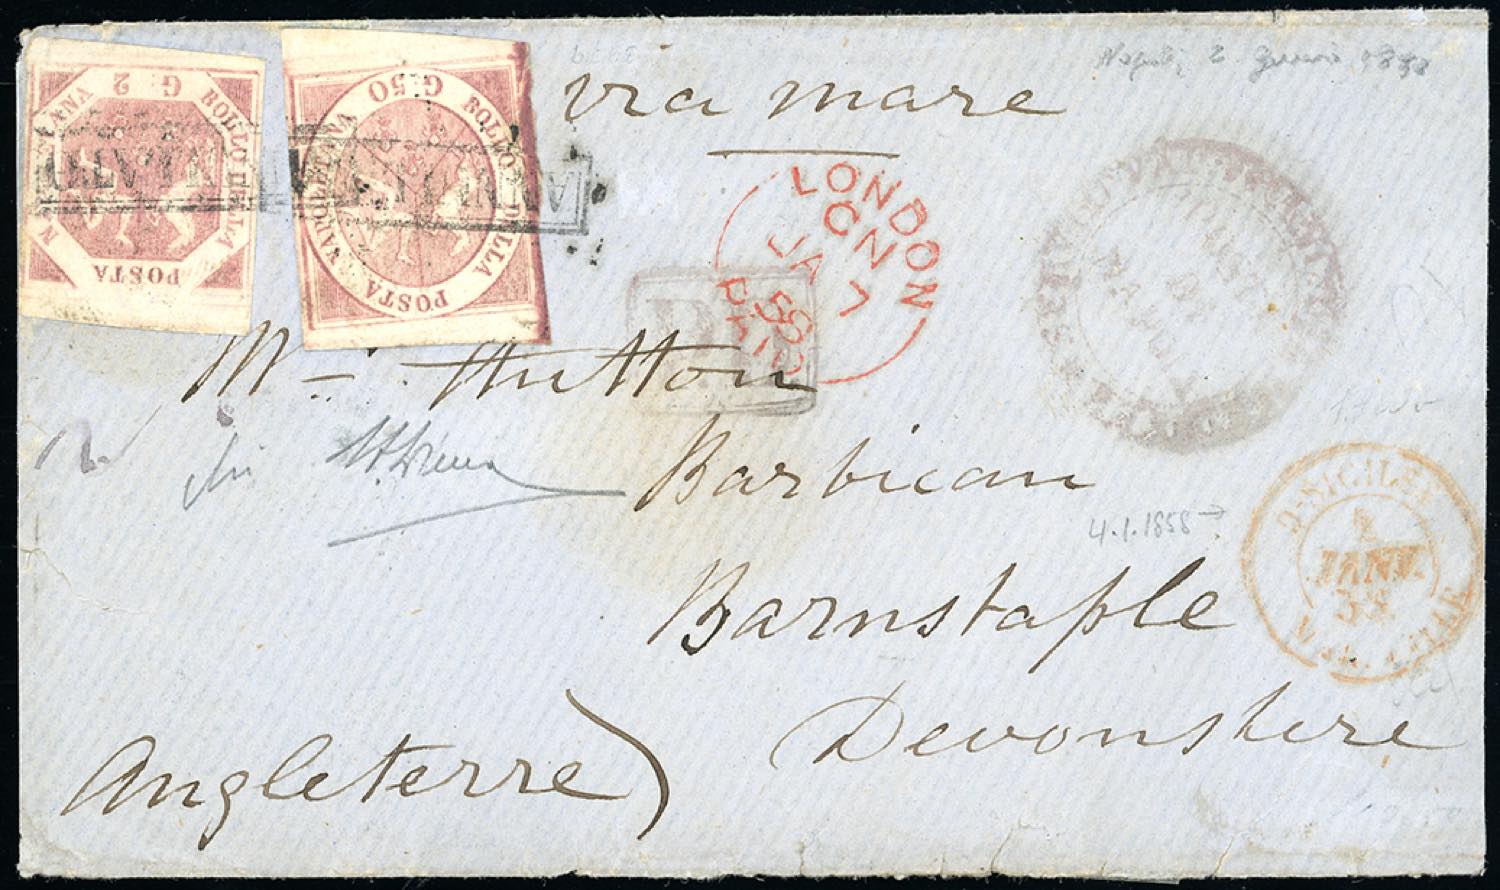 G. 2
BOLLO DELLA
POSTA
NAPOLETANA
G. 50
BOLLO DELLA
POSTA
NAPOLETANA
ANNULLATO
ANNULLATO
via mare
LONDON
CN
JA 7
58
PAID
P.D.
Mrs Hutton
Barbican
Barnstaple
Devonshire
Angleterre
4.1.1858 →
2-SICILES
4
JANV.
58
MARSEILLE
12